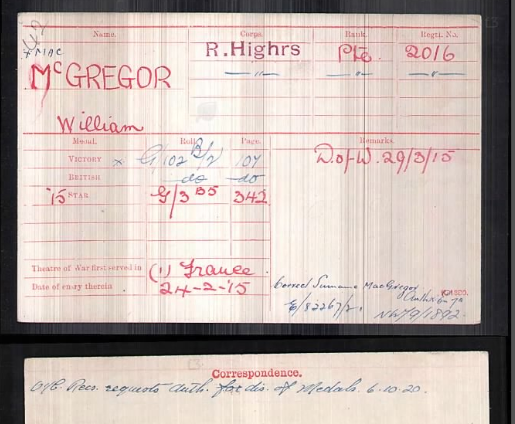 Name. Corps. Rank. Regtl. No.
x MAC
McGREGOR R.Highrs Pte. 2016
— " — — " — — " —
William
Medal. Roll. Page. Remarks.
VICTORY x G/102 B/2 107 D. of W. 29/3/15
BRITISH do do
'15 STAR G/3 B5 342
Theatre of War first served in (1) France.
Date of entry therein 24-2-'15
Correct Surname MacGregor
Correspondence.
O i/c Recs. requests auth. for dis. of Medals. 6.10.20.